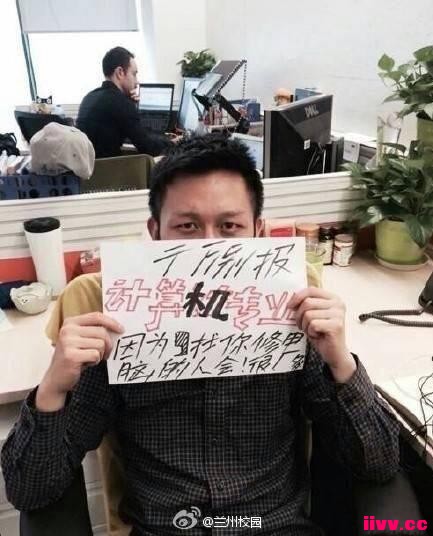 DELL
千万别报
计算机专业
因为找你修电
脑的人会很多
@兰州校园
iivv.cc